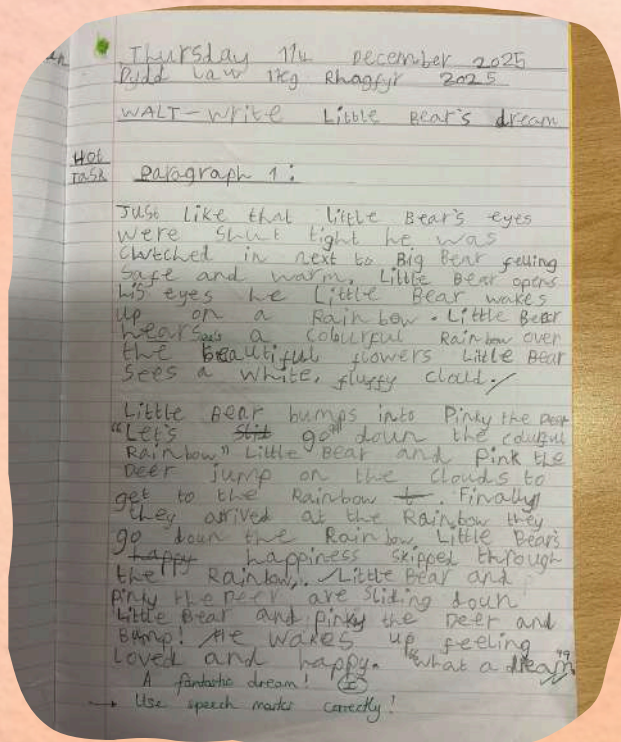 Thursday 11th December 2025
Dydd Iau 11eg Rhagfyr 2025
WALT - Write Little Bear's dream
Hot
Task
Paragraph 1:
Just like that little Bear's eyes
were shut tight he was
clutched in next to Big Bear felling
safe and warm. Little Bear opens
his eyes he Little Bear wakes
up on a Rainbow. Little Bear
hears a colourful Rainbow over
the beautiful flowers Little Bear
sees a white, fluffy cloud.
Little Bear bumps into Pinky the Deer
"Let's go" down the colourful
Rainbow" Little Bear and Pink the
Deer jump on the clouds to
get to the Rainbow . Finally
they arrived at the Rainbow they
go down the Rainbow Little Bear's
happy happiness skipped through
the Rainbow,. Little Bear and
Pinky the Deer are sliding down
Little Bear and Pinky the Deer and
Bump! He wakes up feeling
loved and happy. "what a dream"
A fantastic dream! I
Use speech marks correctly!